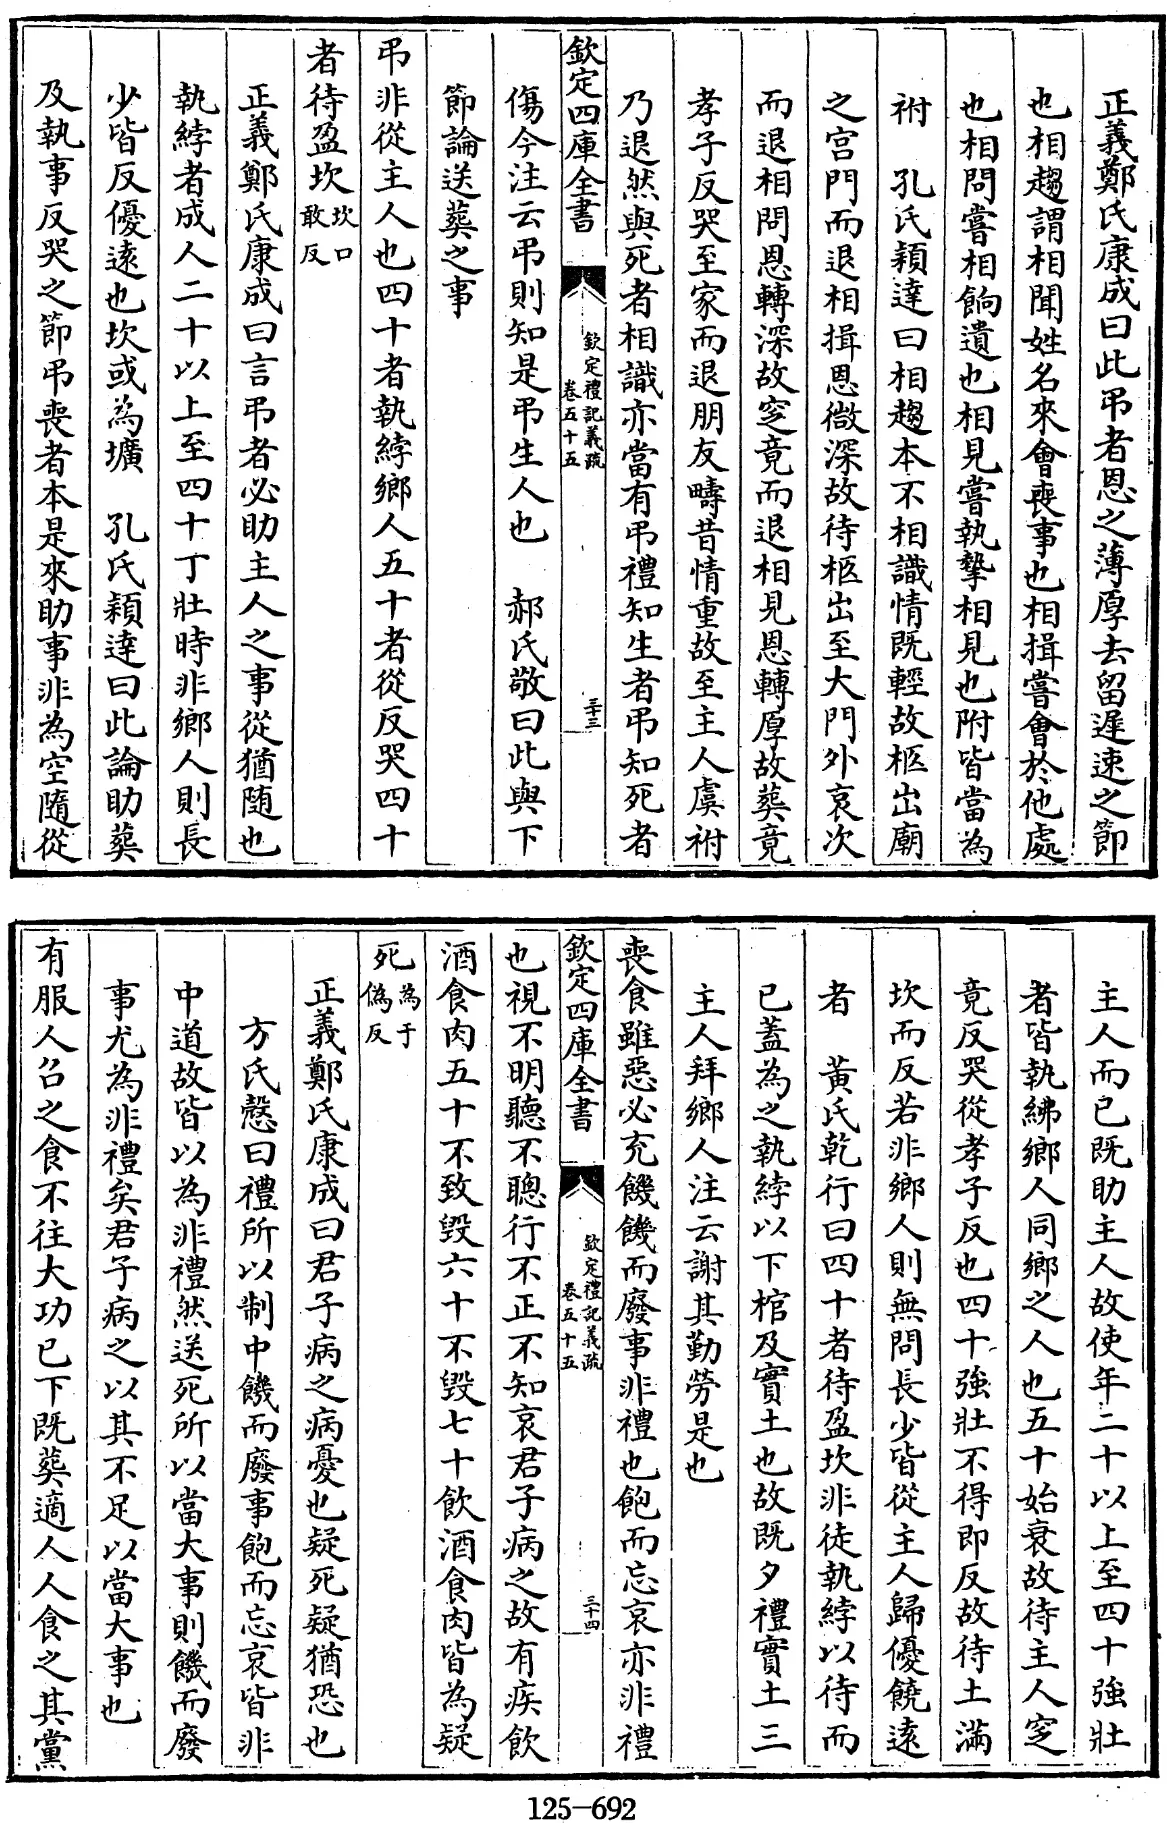 正義鄭氏康成曰此弔者恩之薄厚去留遲速之節
也相趨謂相聞姓名來會喪事也相揖嘗會於他處
也相問嘗相餉遺也相見嘗執摯相見也附皆當為
祔　孔氏穎達曰相趨本不相識情既輕故柩出廟
之宫門而退相揖恩微深故待柩出至大門外哀次
而退相問恩轉深故窆竟而退相見恩轉厚故葬竟
孝子反哭至家而退朋友疇昔情重故至主人虞祔
乃退然與死者相識亦當有弔禮知生者弔知死者
欽定四庫全書
欽定禮記義疏
卷五十五
三十三
傷今注云弔則知是弔生人也　郝氏敬曰此與下
節論送葬之事
弔非從主人也四十者執綍鄉人五十者從反哭四十
者待盈坎坎口敢反
正義鄭氏康成曰言弔者必助主人之事從猶随也
執綍者成人二十以上至四十丁壯時非鄉人則長
少皆反優遠也坎或為壙　孔氏穎達曰此論助葬
及執事反哭之節弔喪者本是來助事非為空隨從
主人而已既助主人故使年二十以上至四十強壯
者皆執紼鄉人同鄉之人也五十始衰故待主人窆
竟反哭從孝子反也四十強壯不得即反故待土滿
坎而反若非鄉人則無問長少皆從主人歸優饒遠
者　黃氏乾行曰四十者待盈坎非徒執綍以待而
已蓋為之執綍以下棺及實土也故既夕禮實土三
主人拜鄉人注云謝其勤勞是也
喪食雖惡必充饑饑而廢事非禮也飽而忘哀亦非禮
欽定四庫全書
欽定禮記義疏
卷五十五
三十四
也視不明聽不聰行不正不知哀君子病之故有疾飲
酒食肉五十不致毀六十不毀七十飲酒食肉皆為疑
死為于偽反
正義鄭氏康成曰君子病之病憂也疑死疑猶恐也
方氏慤曰禮所以制中饑而廢事飽而忘哀皆非
中道故皆以為非禮然送死所以當大事則饑而廢
事尤為非禮矣君子病之以其不足以當大事也
有服人召之食不往大功已下既葬適人人食之其黨
125-692